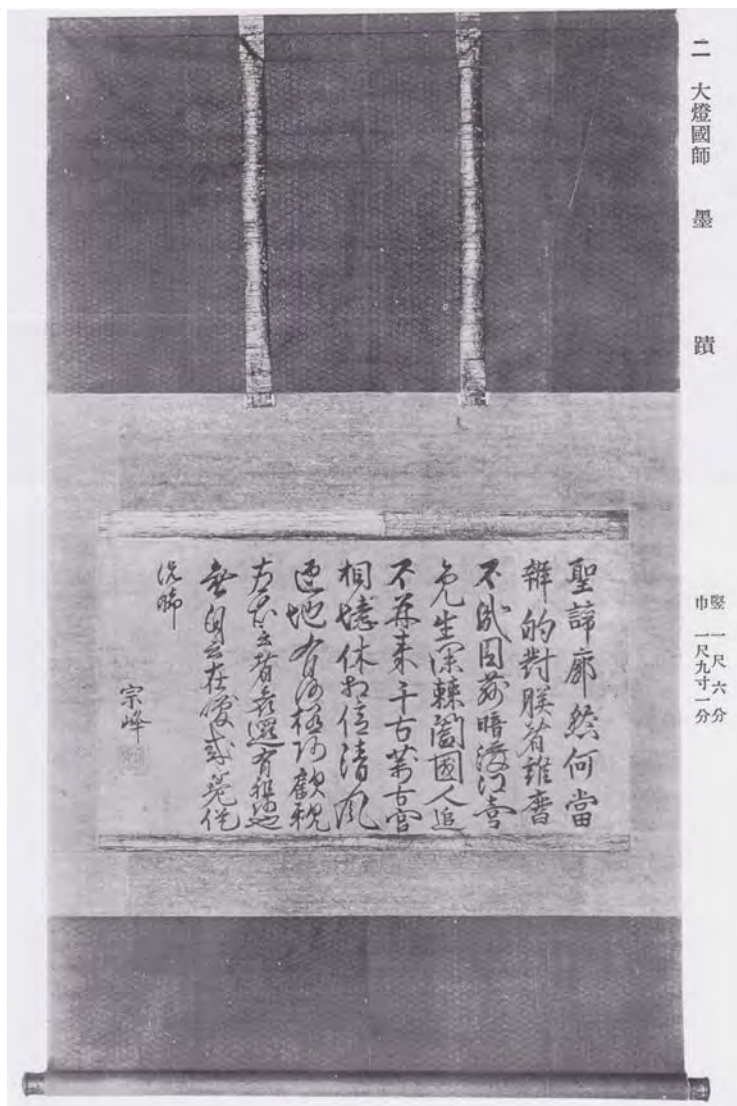 二 大燈國師 墨蹟
竪 一尺六分
巾 一尺九寸一分
聖諦廓然何當
辨的對朕者誰
不識因茲暗渡江豈
免生深棘闔國人追
不再來千古萬古空
相憶休相憶清風
匝地有何極師顧視
左右云者裏還有祖師
自云 喚 老僧
洗脚
宗峰